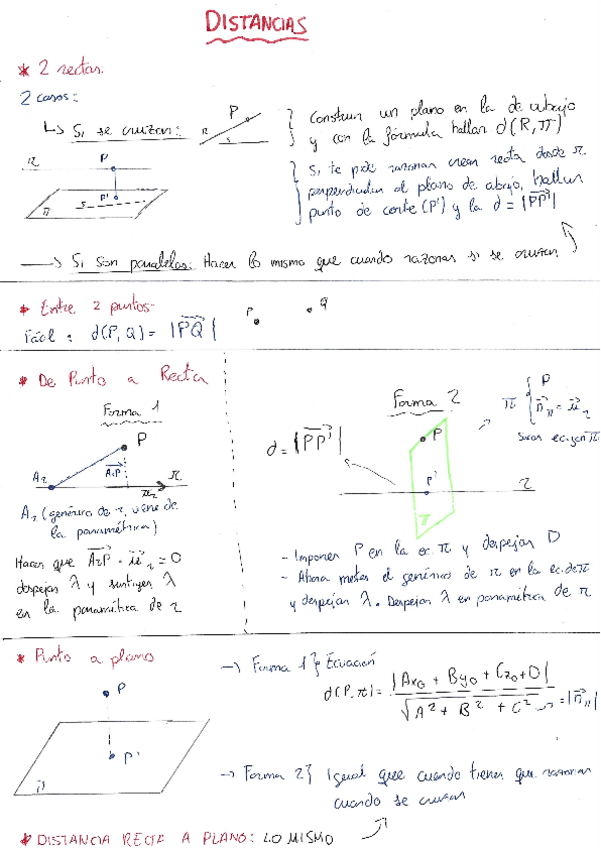 DISTANCIAS
* 2 rectas.
2 casos:
↳ Si se cruzan:
P
R
s
} Construir un plano en la de abajo
y con la fórmula hallar d(R,π)
r
P
P'
s
π
} Si te pide razonar crear recta desde r
perpendicular al plano de abajo, hallar
punto de corte (P') y la d = |PP'|
→ Si son paralelas: Hacer lo mismo que cuando razonas si se cruzan
* Entre 2 puntos-
Fácil: d(P,Q) = |PQ|
P
Q
* De Punto a Recta
Forma 1
P
Ar
ArP
r
ur
Ar (genérico de r, viene de
la paramétrica)
Hacer que ArP · ur = 0
despejas λ y sustituyes λ
en la paramétrica de r
Forma 2
d = |PP'|
P
P'
r
π
π { P
nπ = ur
Sacas ec. gen π
- Imponer P en la ec. π y despejar D
- Ahora metes el genérico de r en la ec. de π
y despejas λ. Despejas λ en paramétrica de r
* Punto a plano
P
P'
π
→ Forma 1 } Ecuación
d(P,π) = |Ax0 + By0 + Cz0 + D| / √A² + B² + C² → = |nπ|
→ Forma 2 } Igual que cuando tienes que razonar
cuando se cruzan
* DISTANCIA RECTA A PLANO: LO MISMO